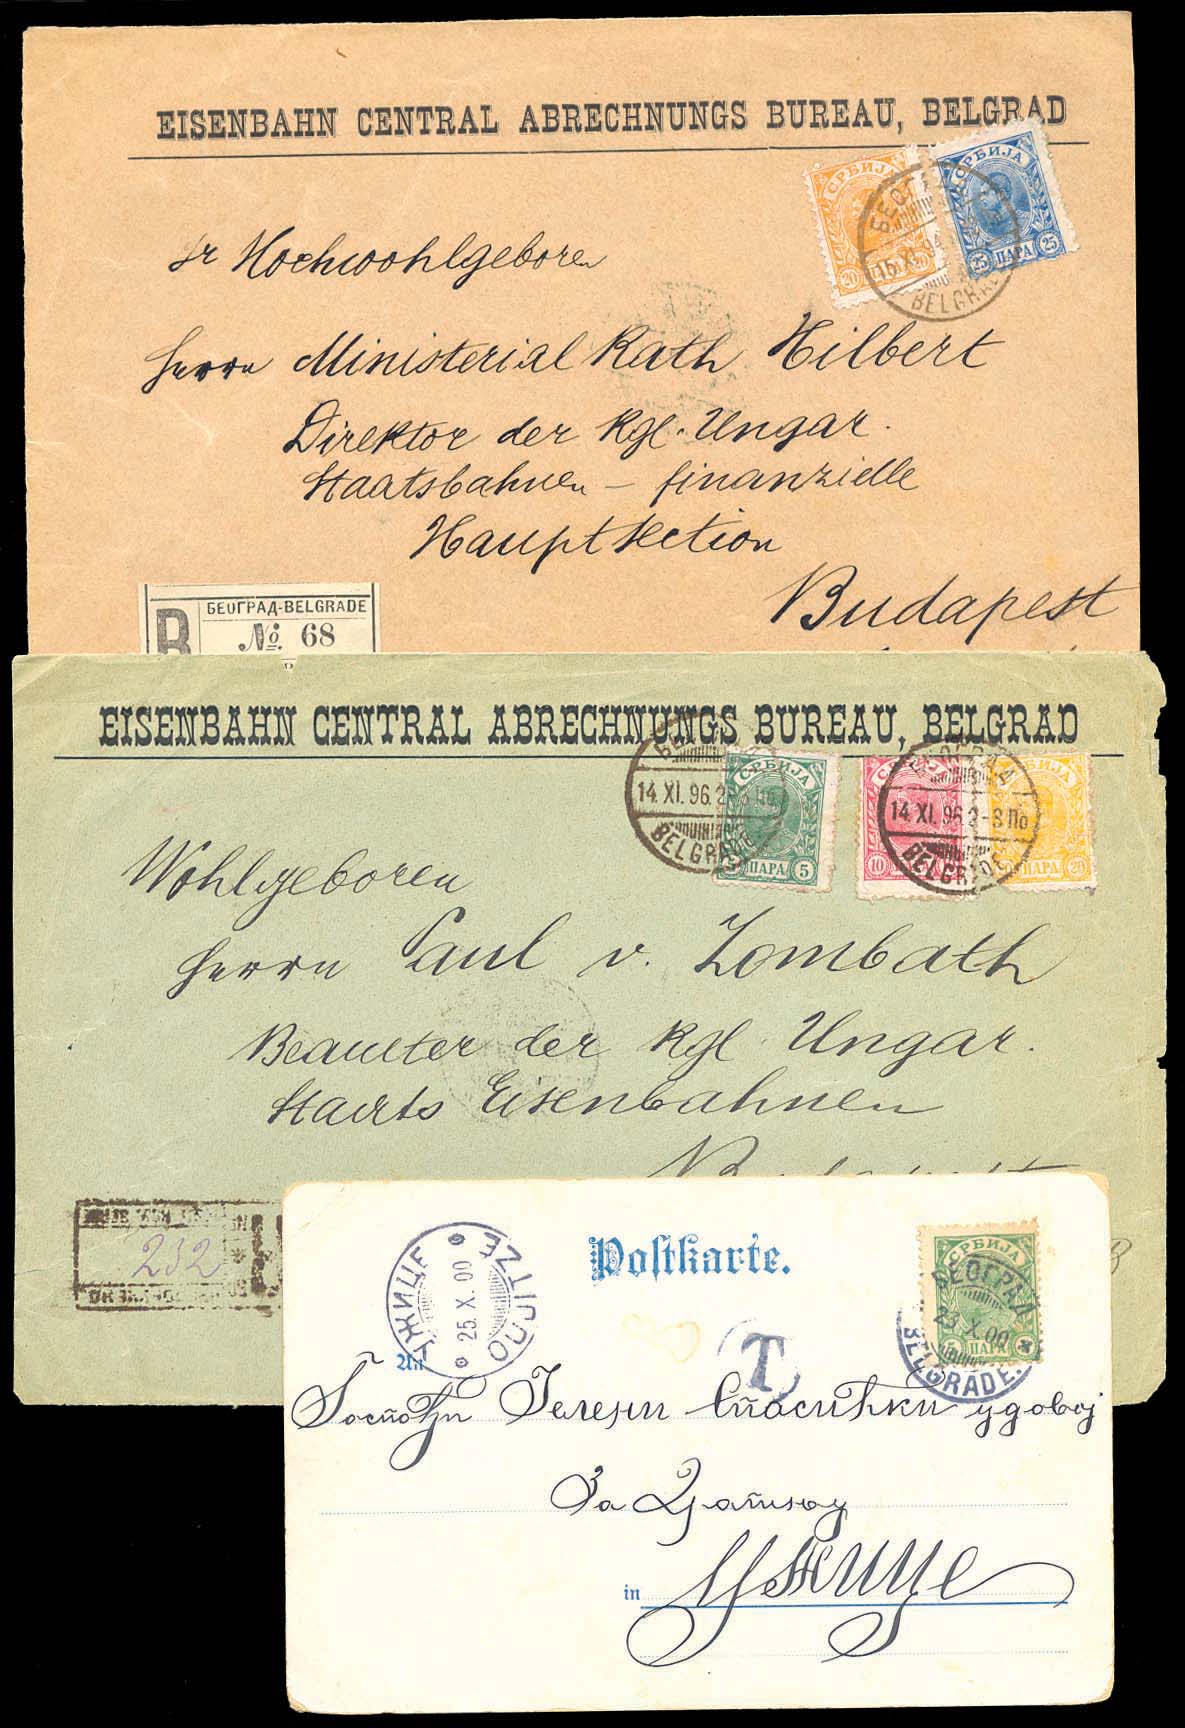 EISENBAHN CENTRAL ABRECHNUNGS BUREAU, BELGRAD
СРБИЈА
20 ПАРА 20
СРБИЈА
25 ПАРА 25
БЕОГРАД
15. XI. 94
BELGRADE
Sr Hochwohlgeboren
Herrn Ministerial Rath Hilbert
Direktor der Kgl. Ungar.
Staatsbahnen – finanzielle
Hauptsection
Budapest
R
БЕОГРАД-BELGRADE
No. 68
EISENBAHN CENTRAL ABRECHNUNGS BUREAU, BELGRAD
СРБИЈА
ПАРА 5
СРБИЈА
10
СРБИЈА
ПАРА 20
14. XI. 96. 2-3 По
BELGRADE
БЕОГРАД
14. XI. 96. 2-3 По
BELGRADE
Wohlgeboren
Herrn Paul v. Zombath
Beamter der Kgl. Ungar.
Staats Eisenbahnen
232
Postkarte.
УЖИЦЕ
25. X. 00
OUJITZÉ
T
СРБИЈА
5 ПАРА 5
БЕОГРАД
23 X. 00
BELGRADE.
An
Госпођи Јелени Спасићки удовој
За Драгињу
in Ужице